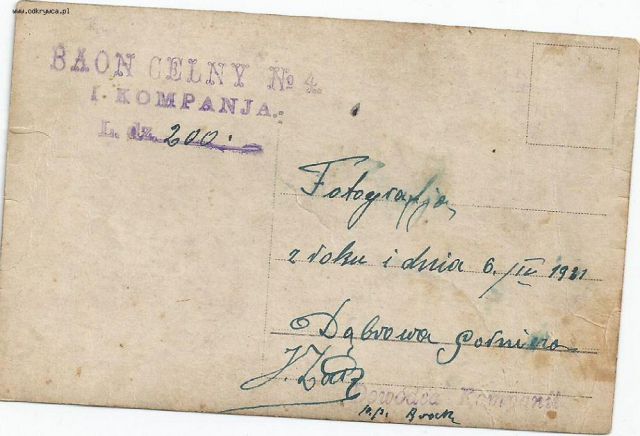 www.odkrywca.pl
BAON CELNY № 4.
I. KOMPANJA.
L. dz. 200.
Fotografja
z roku i dnia 6./IV 1921
Dąbrowa Górnicza
Dowódca Kompanii